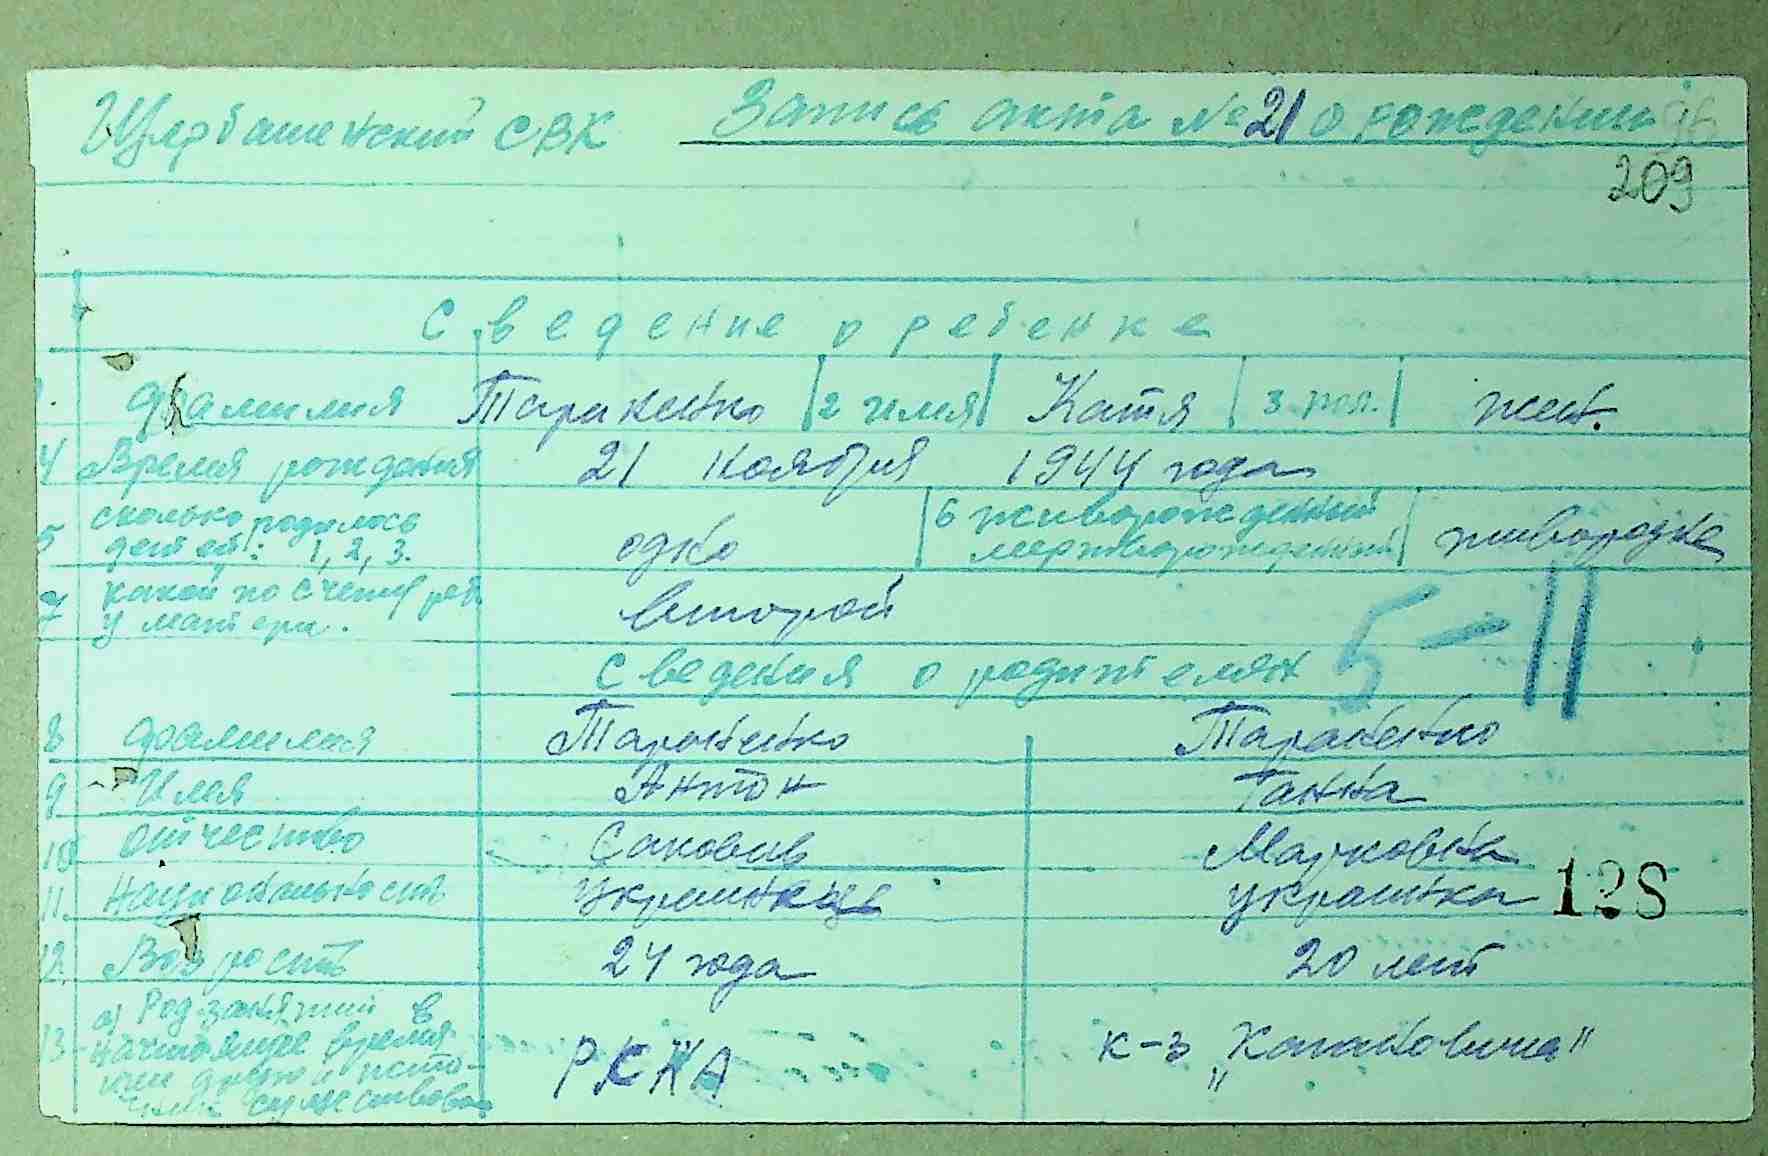 Щербашенский СВК Запись акта № 21 о рождении
209
Сведение о ребенке
фамилия Тараненко 2 имя Катя 3 пол. жен.
4 Время рождения 21 ноября 1944 года
5 сколько родилось детей: 1, 2, 3. одно 6 живорожденный мертворожденный живородже
7 какой по счету реб. у матери. второй
5-11
Сведения о родителях
8 фамилия Тараненко Тараненко
9 Имя Антон Ганна
10 отчество Марковна
11. Национальность украинець украинка 128
12. Возрость 24 года 20 лет
13 а) Род занятий в
настоящее время
РККА к-з „Кагановича"